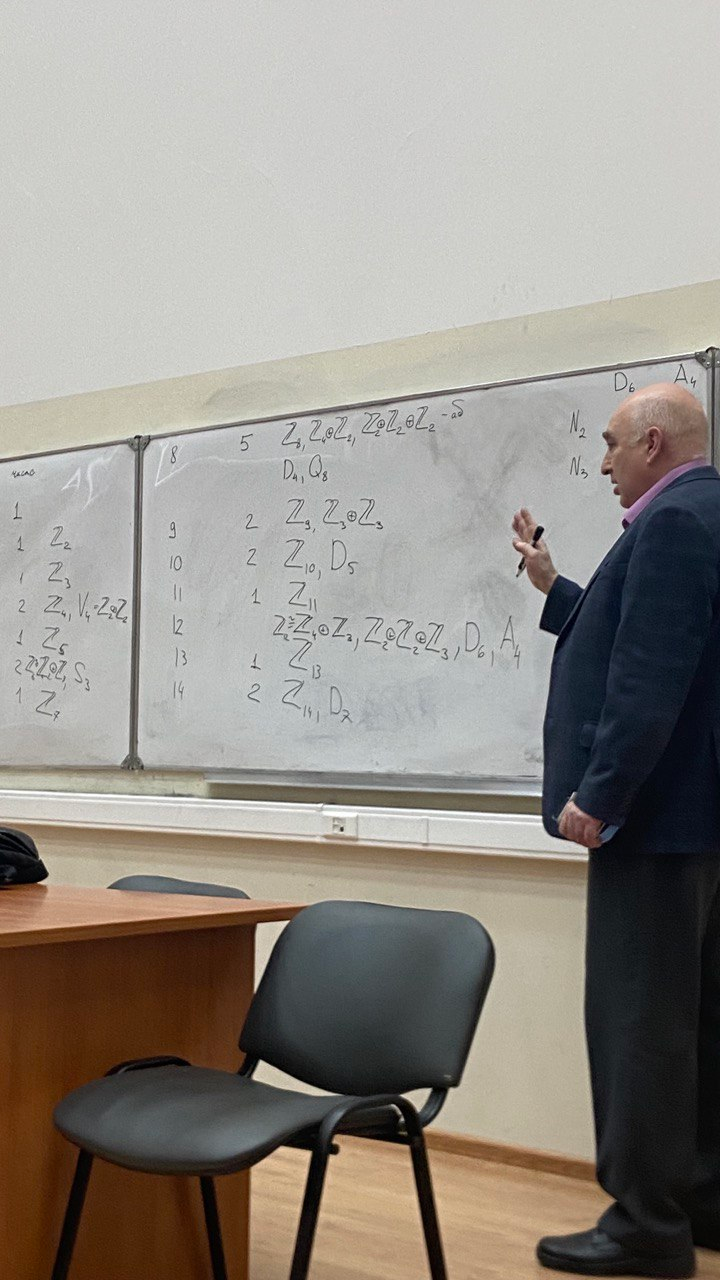 число
1
1 ℤ₂
1 ℤ₃
2 ℤ₄, V₄=ℤ₂⊕ℤ₂
1 ℤ₅
S₃
1 ℤ₇
8 5 ℤ₈, ℤ₄⊕ℤ₂, ℤ₂⊕ℤ₂⊕ℤ₂ -аб
D₄, Q₈
9 2 ℤ₉, ℤ₃⊕ℤ₃
10 2 ℤ₁₀, D₅
11 1 ℤ₁₁
12 ℤ₁₂≅ℤ₄⊕ℤ₃, ℤ₂⊕ℤ₂⊕ℤ₃, D₆, A₄
13 1 ℤ₁₃
14 2 ℤ₁₄, D₇
D₆ A₄
N₂
N₃